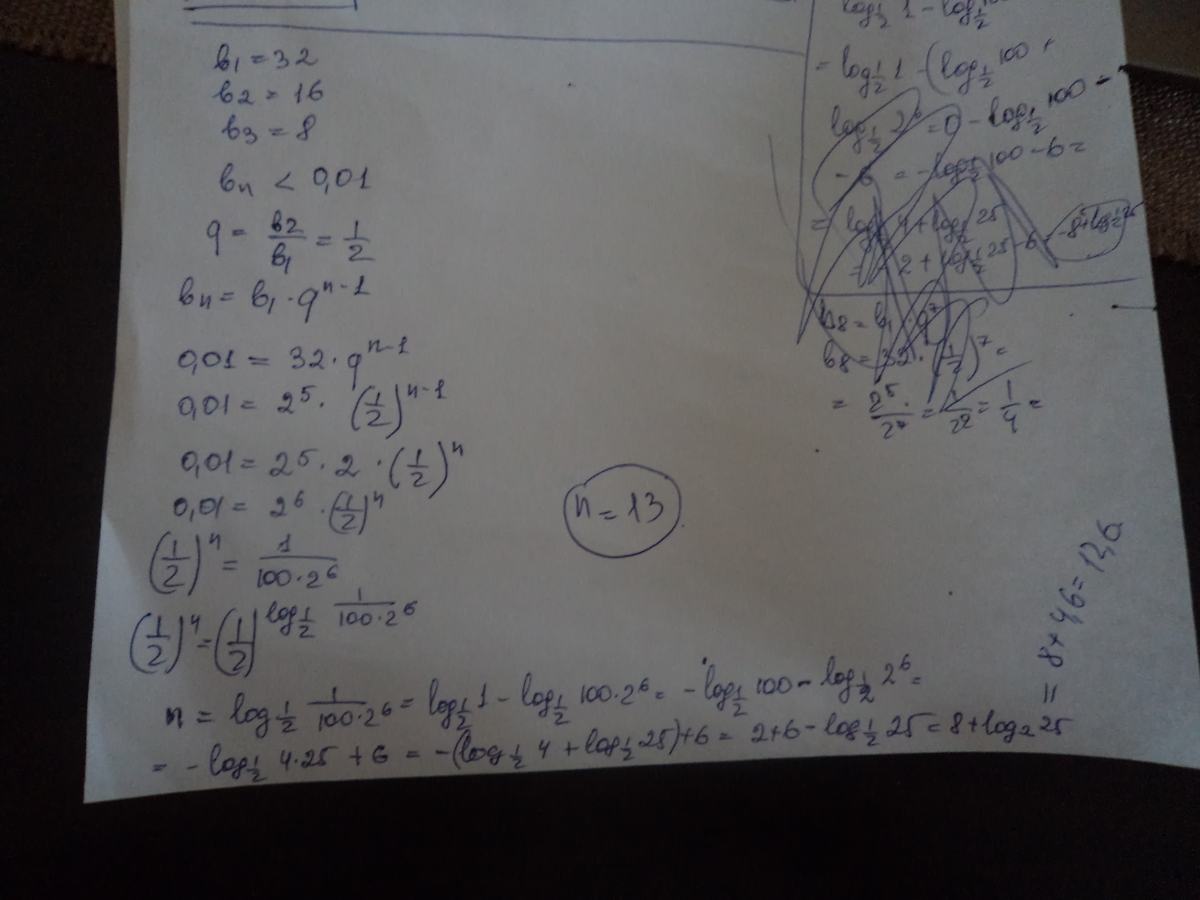 b₁ = 32
b₂ = 16
b₃ = 8
bₙ < 0,01
q = b₂/b₁ = 1/2
bₙ = b₁ · qⁿ⁻¹
0,01 = 32 · qⁿ⁻¹
0,01 = 2⁵ · (1/2)ⁿ⁻¹
0,01 = 2⁵ · 2 · (1/2)ⁿ
0,01 = 2⁶ · (1/2)ⁿ
(1/2)ⁿ = 1/(100·2⁶)
(1/2)ⁿ = (1/2)^(log_(1/2) 1/(100·2⁶))
n = log_(1/2) 1/(100·2⁶) = log_(1/2) 1 - log_(1/2) 100·2⁶ = -log_(1/2) 100 - log_(1/2) 2⁶ =
= -log_(1/2) 4·25 + 6 = -(log_(1/2) 4 + log_(1/2) 25) + 6 = 2+6 - log_(1/2) 25 = 8 + log₂ 25
= 8 + 4,6 = 12,6
n = 13
log_(1/2) 1 - log_(1/2) 100
= log_(1/2) 1 - (log_(1/2) 100 +
log_(1/2) 2⁶ = 0 - log_(1/2) 100 -
- 6 = -log_(1/2) 100 - 6 =
= log_(1/2) 4 + log_(1/2) 25
= 2 + log_(1/2) 25 - 6 = -8 + log_(1/2) 25
b₈ = b₁ · q⁷
b₈ = 32 · (1/2)⁷ =
= 2⁵/2⁷ = 1/2² = 1/4 =